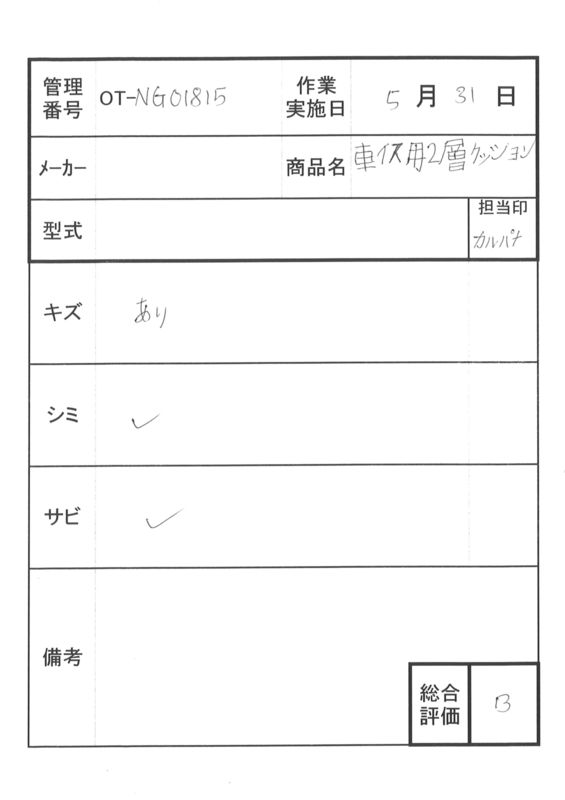 管理番号 OT-NG01815 作業実施日 5月31日
メーカー 商品名 車イス用2層クッション
型式 担当印 カルパナ
キズ あり
シミ ✓
サビ ✓
備考
総合評価 B